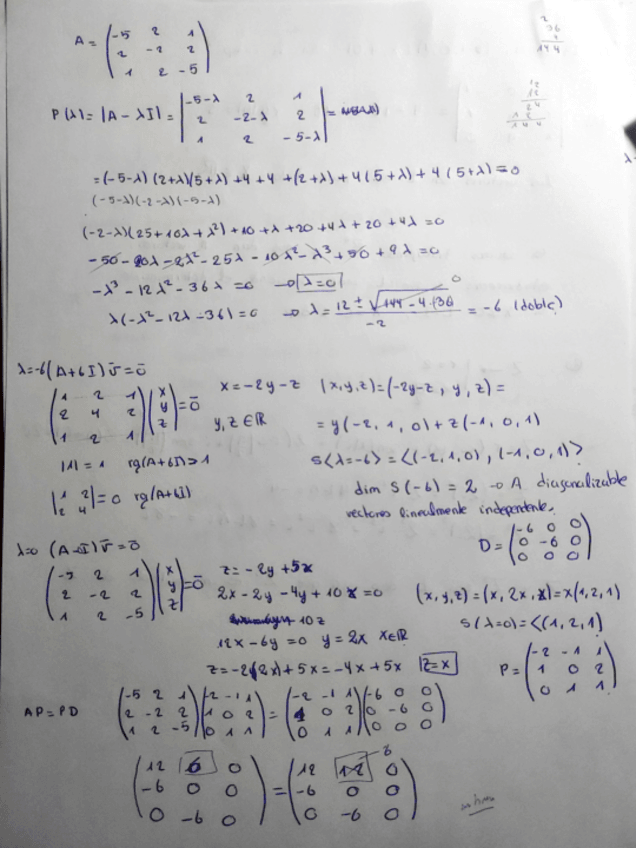 A = (-5 2 1
2 -2 2
1 2 -5)
36
144
P(λ) = |A - λI| = |-5-λ 2 1
2 -2-λ 2
1 2 -5-λ| =
= (-5-λ)(2+λ)(5+λ) + 4 + 4 + (2+λ) + 4(5+λ) + 4(5+λ) = 0
(-5-λ)(-2-λ)(-5-λ)
(-2-λ)(25+10λ+λ²) + 10 + λ + 20 + 4λ + 20 + 4λ = 0
-50 - 20λ - 2λ² - 25λ - 10λ² - λ³ + 50 + 9λ = 0
-λ³ - 12λ² - 36λ = 0 → λ=0
λ(-λ² - 12λ - 36) = 0 → λ = 12 ± √144 - 4·(36 / -2 = -6 (doble)
0
λ=-6 (A+6I) v̄ = 0̄
(1 2 1
2 4 2
1 2 1) (x
y
z) = 0̄
x = -2y - z (x,y,z) = (-2y-z, y, z) =
y, z ∈ ℝ = y(-2, 1, 0) + z(-1, 0, 1)
|1| = 1 rg(A+6I) > 1 S<λ=-6> = <(-2,1,0), (-1,0,1)>
|1 2
2 4| = 0 rg(A+6I)
dim S(-6) = 2 → A diagonalizable
vectores linealmente independente.
D = (-6 0 0
0 -6 0
0 0 0)
λ=0 (A-0I) v̄ = 0̄
(-5 2 1
2 -2 2
1 2 -5) (x
y
z) = 0̄
z = -2y + 5x
2x - 2y - 4y + 10x = 0 (x,y,z) = (x, 2x, x) = x(1,2,1)
10z
12x - 6y = 0 y = 2x x∈ℝ S(λ=0) = <(1,2,1)
z = -2(2x) + 5x = -4x + 5x z=x
P = (-2 -1 1
1 0 2
0 1 1)
AP = PD (-5 2 1
2 -2 2
1 2 -5) (-2 -1 1
1 0 2
0 1 1) = (-2 -1 1
1 0 2
0 1 1) (-6 0 0
0 -6 0
0 0 0)
(12 6 0
-6 0 0
0 -6 0) = (12 12 0
-6 0 0
0 -6 0)
6